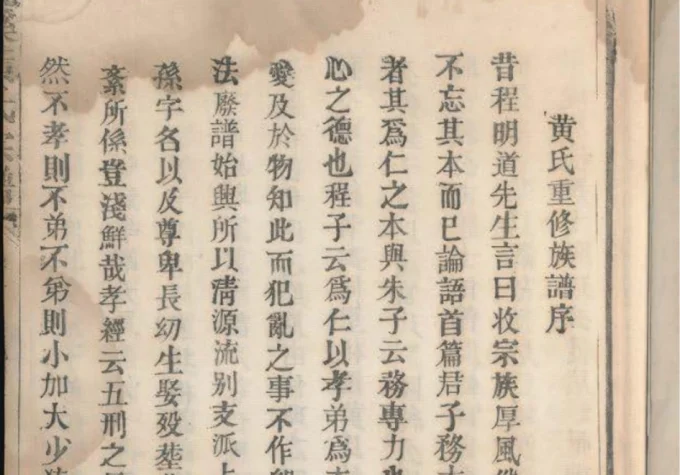 黃氏重修族譜序
昔程明道先生言曰收宗族厚風
不忘其本而已論語首篇君子務
者其爲仁之本與朱子云務專力
心之德也程子云爲仁以孝弟爲
愛及於物知此而犯亂之事不作
法廢譜始興所以清源流别支派
孫字名以及尊卑長幼生娶殁塟
紊所係登淺鮮哉孝經云五刑之
然不孝則不弟不弟則小加大少